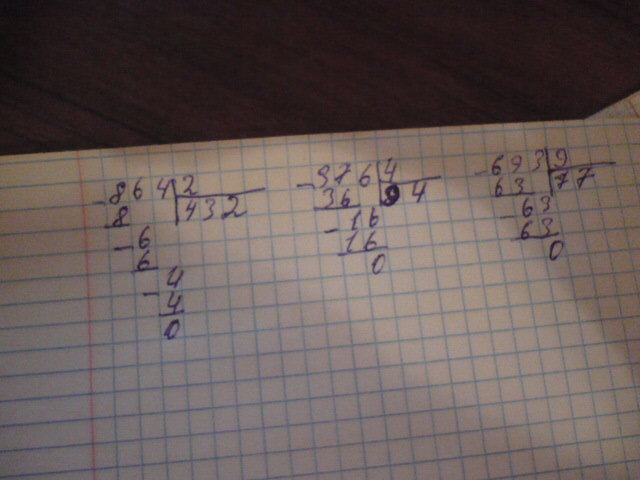 -864|2
8 432
-6
6
-4
4
0
-376|4
36 94
-16
16
0
-693|9
63 77
-63
63
0